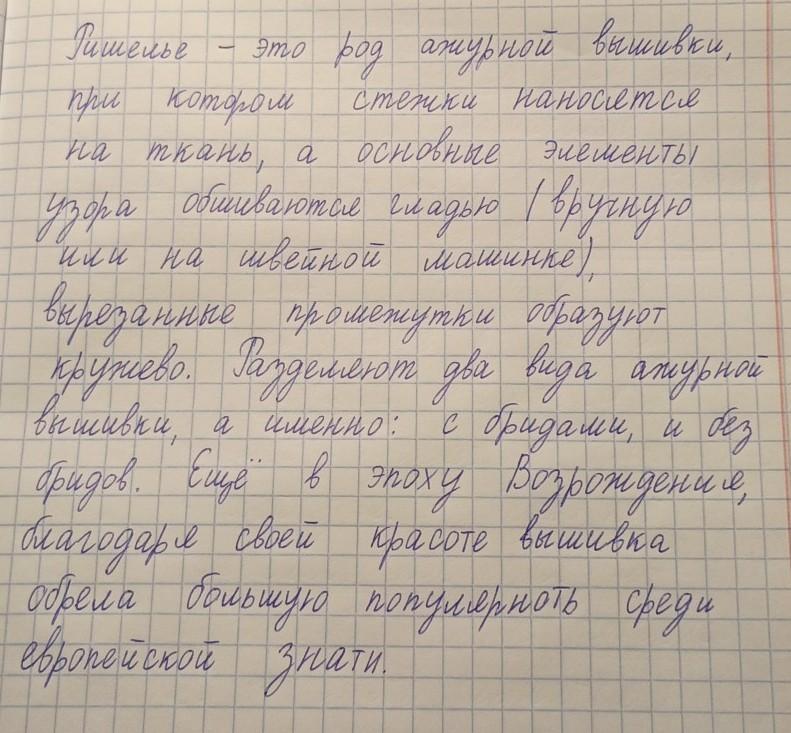 Ришелье – это род ажурной вышивки,
при котором стежки наносятся
на ткань, а основные элементы
узора обшиваются гладью (вручную
или на швейной машинке),
вырезанные промежутки образуют
кружево. Разделяют два вида ажурной
вышивки, а именно: с бридами, и без
бридов. Ещё в эпоху Возрождения,
благодаря своей красоте вышивка
обрела большую популярноть среди
европейской знати.